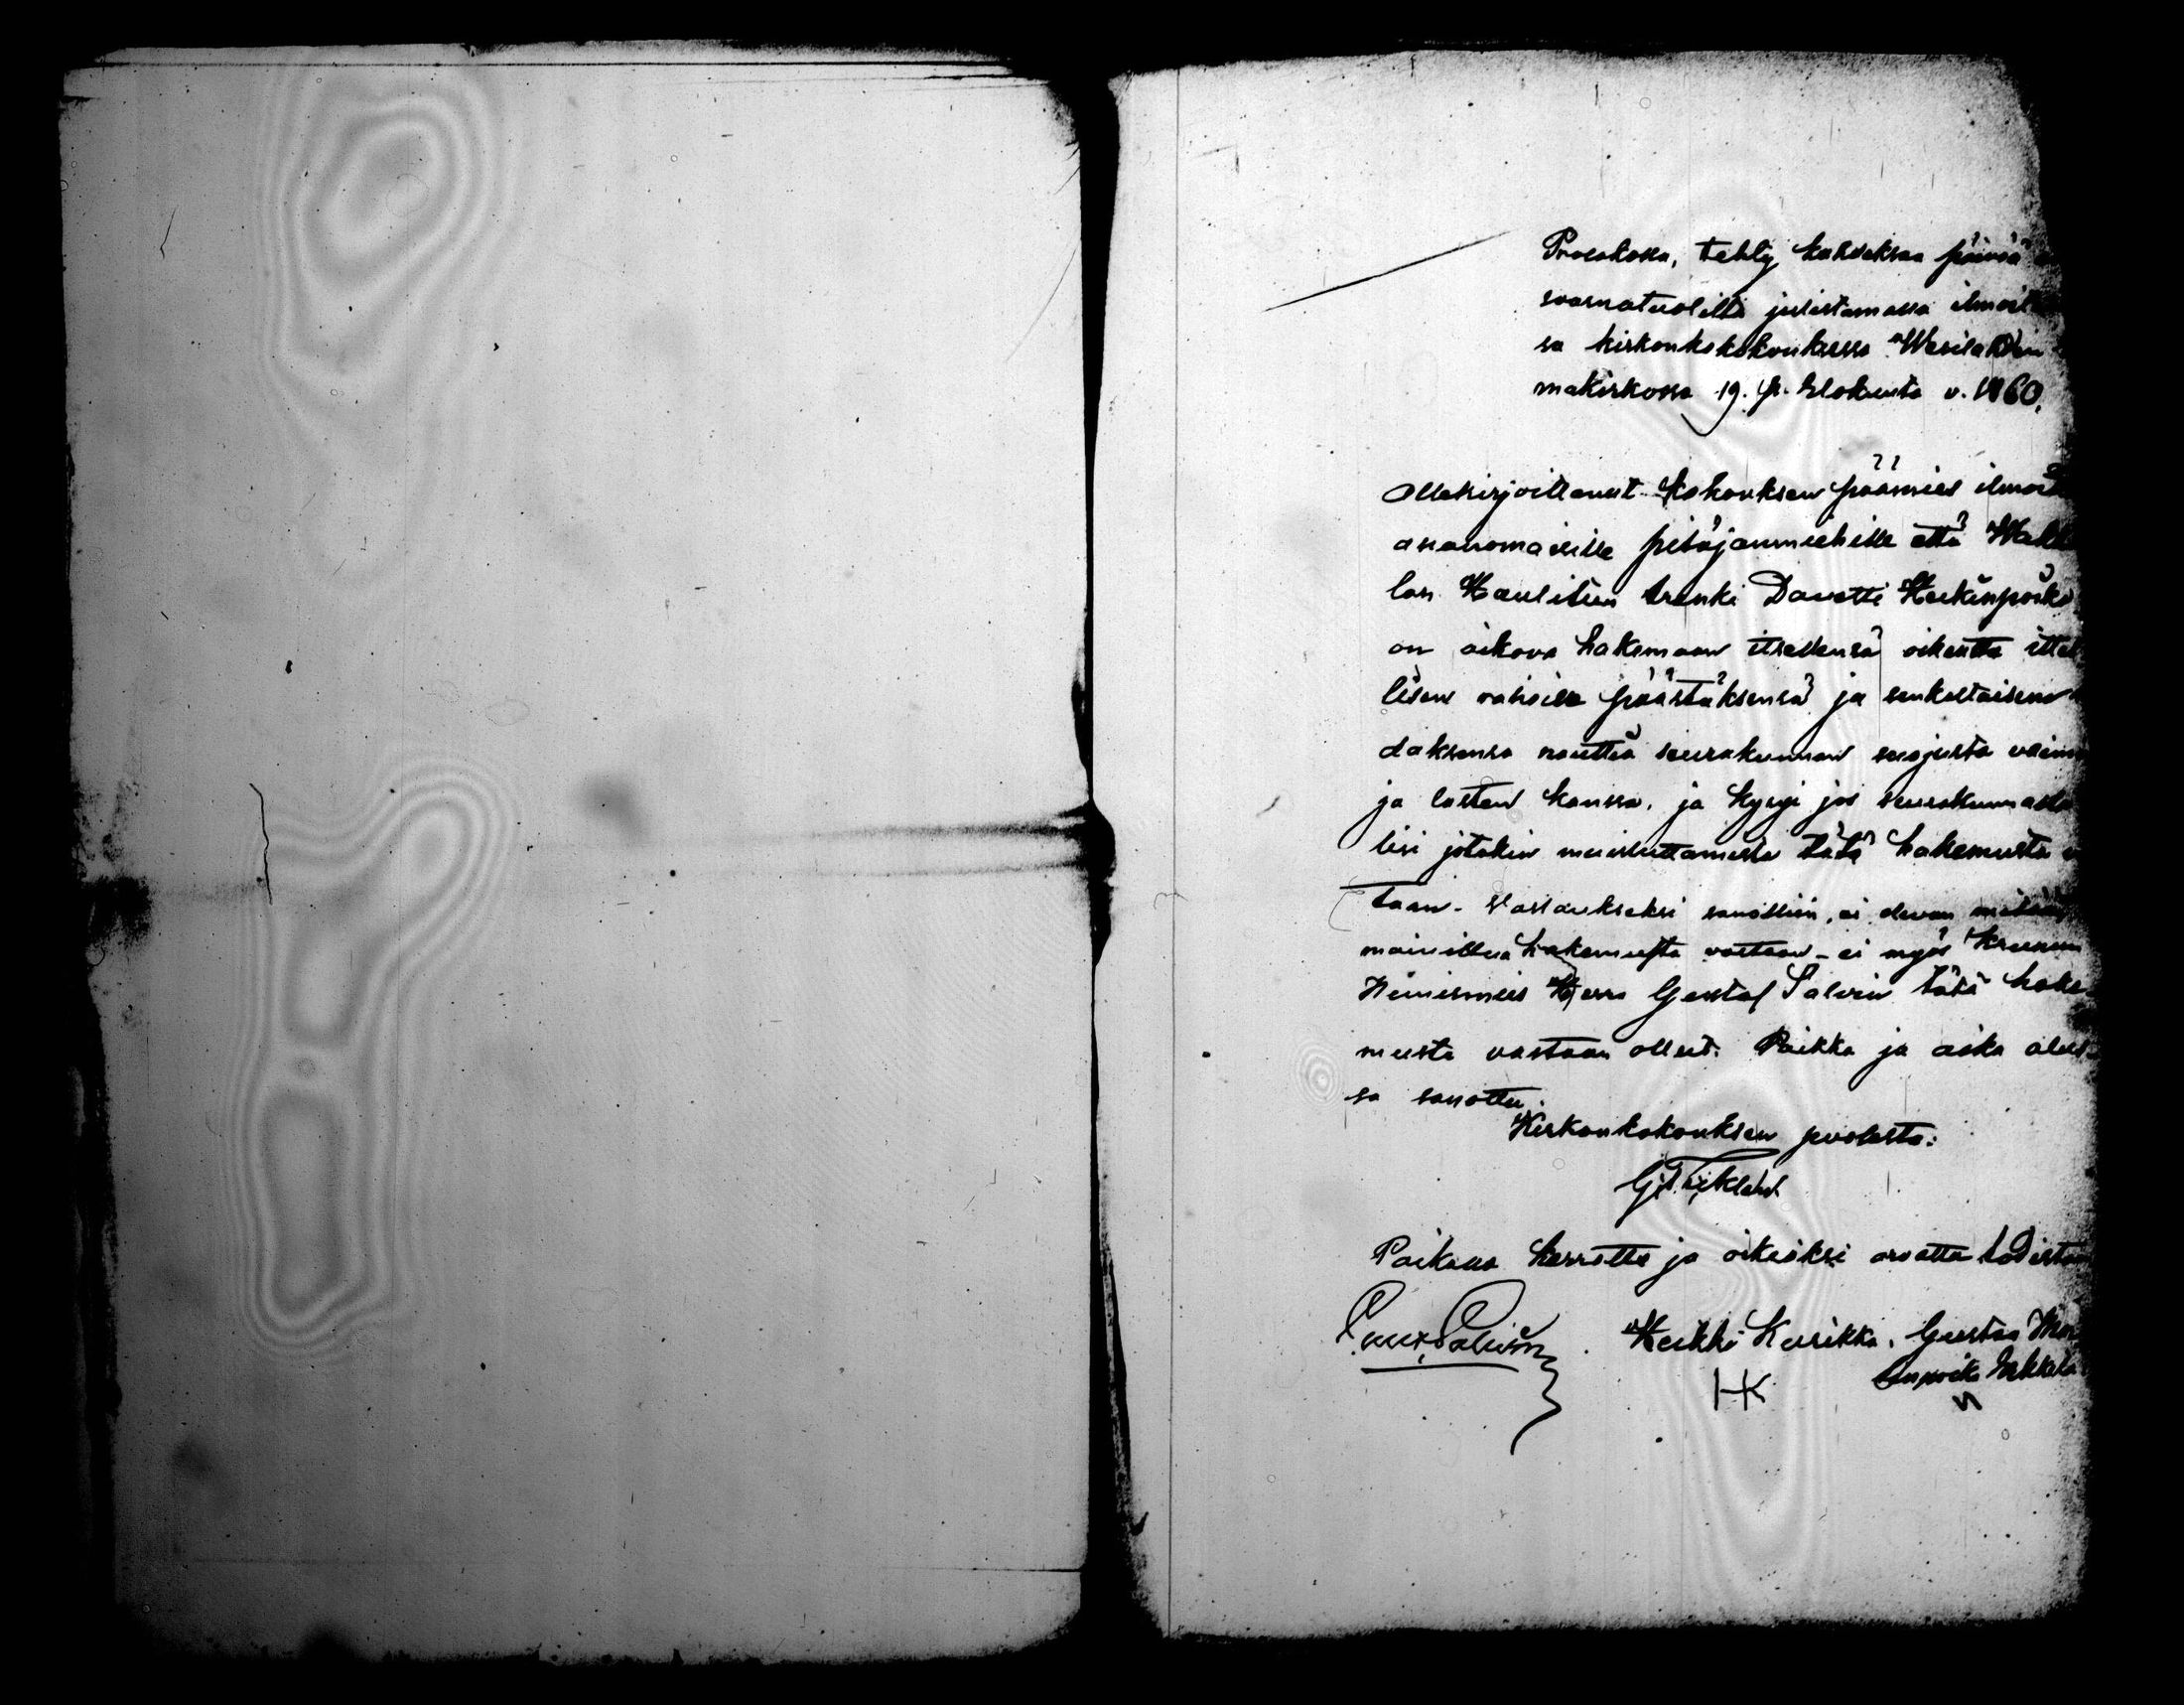 Procokolla, tehty kahdeksaa päivää
saarnatuolilta julistamassa ilmoit
sa kirkonkokokouksessa Wesilaxin
makirkossa 19. p. Elokuuta v. 1860.
Allekirjoittanut Kokouksen päämies ilmoit
asianomaisille pitäjänmiehille että
lan Kaulitun trenki Davetti Heikinpoika
on aikova hakemaan itsellensä oikeutta ittel
lisen vahoille päästäksensä ja senkaltaisena
daksensa nauttia seurakunnan suojusta vaimo
ja lasten kanssa, ja kysyi jos seurakunnasta
lisi jotakin muistuttamista tätä hakemusta
taan. Vastaukseksi sanottiin, ei olevan mitään
mainittua hakemusta vastaan - ei myös Kruunun
Nimismies Herra Gustaf Salvin tätä hake-
musta vastaan ollut. Paikka ja aika alus-
sa sanottu.
Kirkonkokouksen puolesta:
Paikassa kerrottu ja oikiaksi arvattu todistaa
Heikki Kurikka, Gustaa
HK